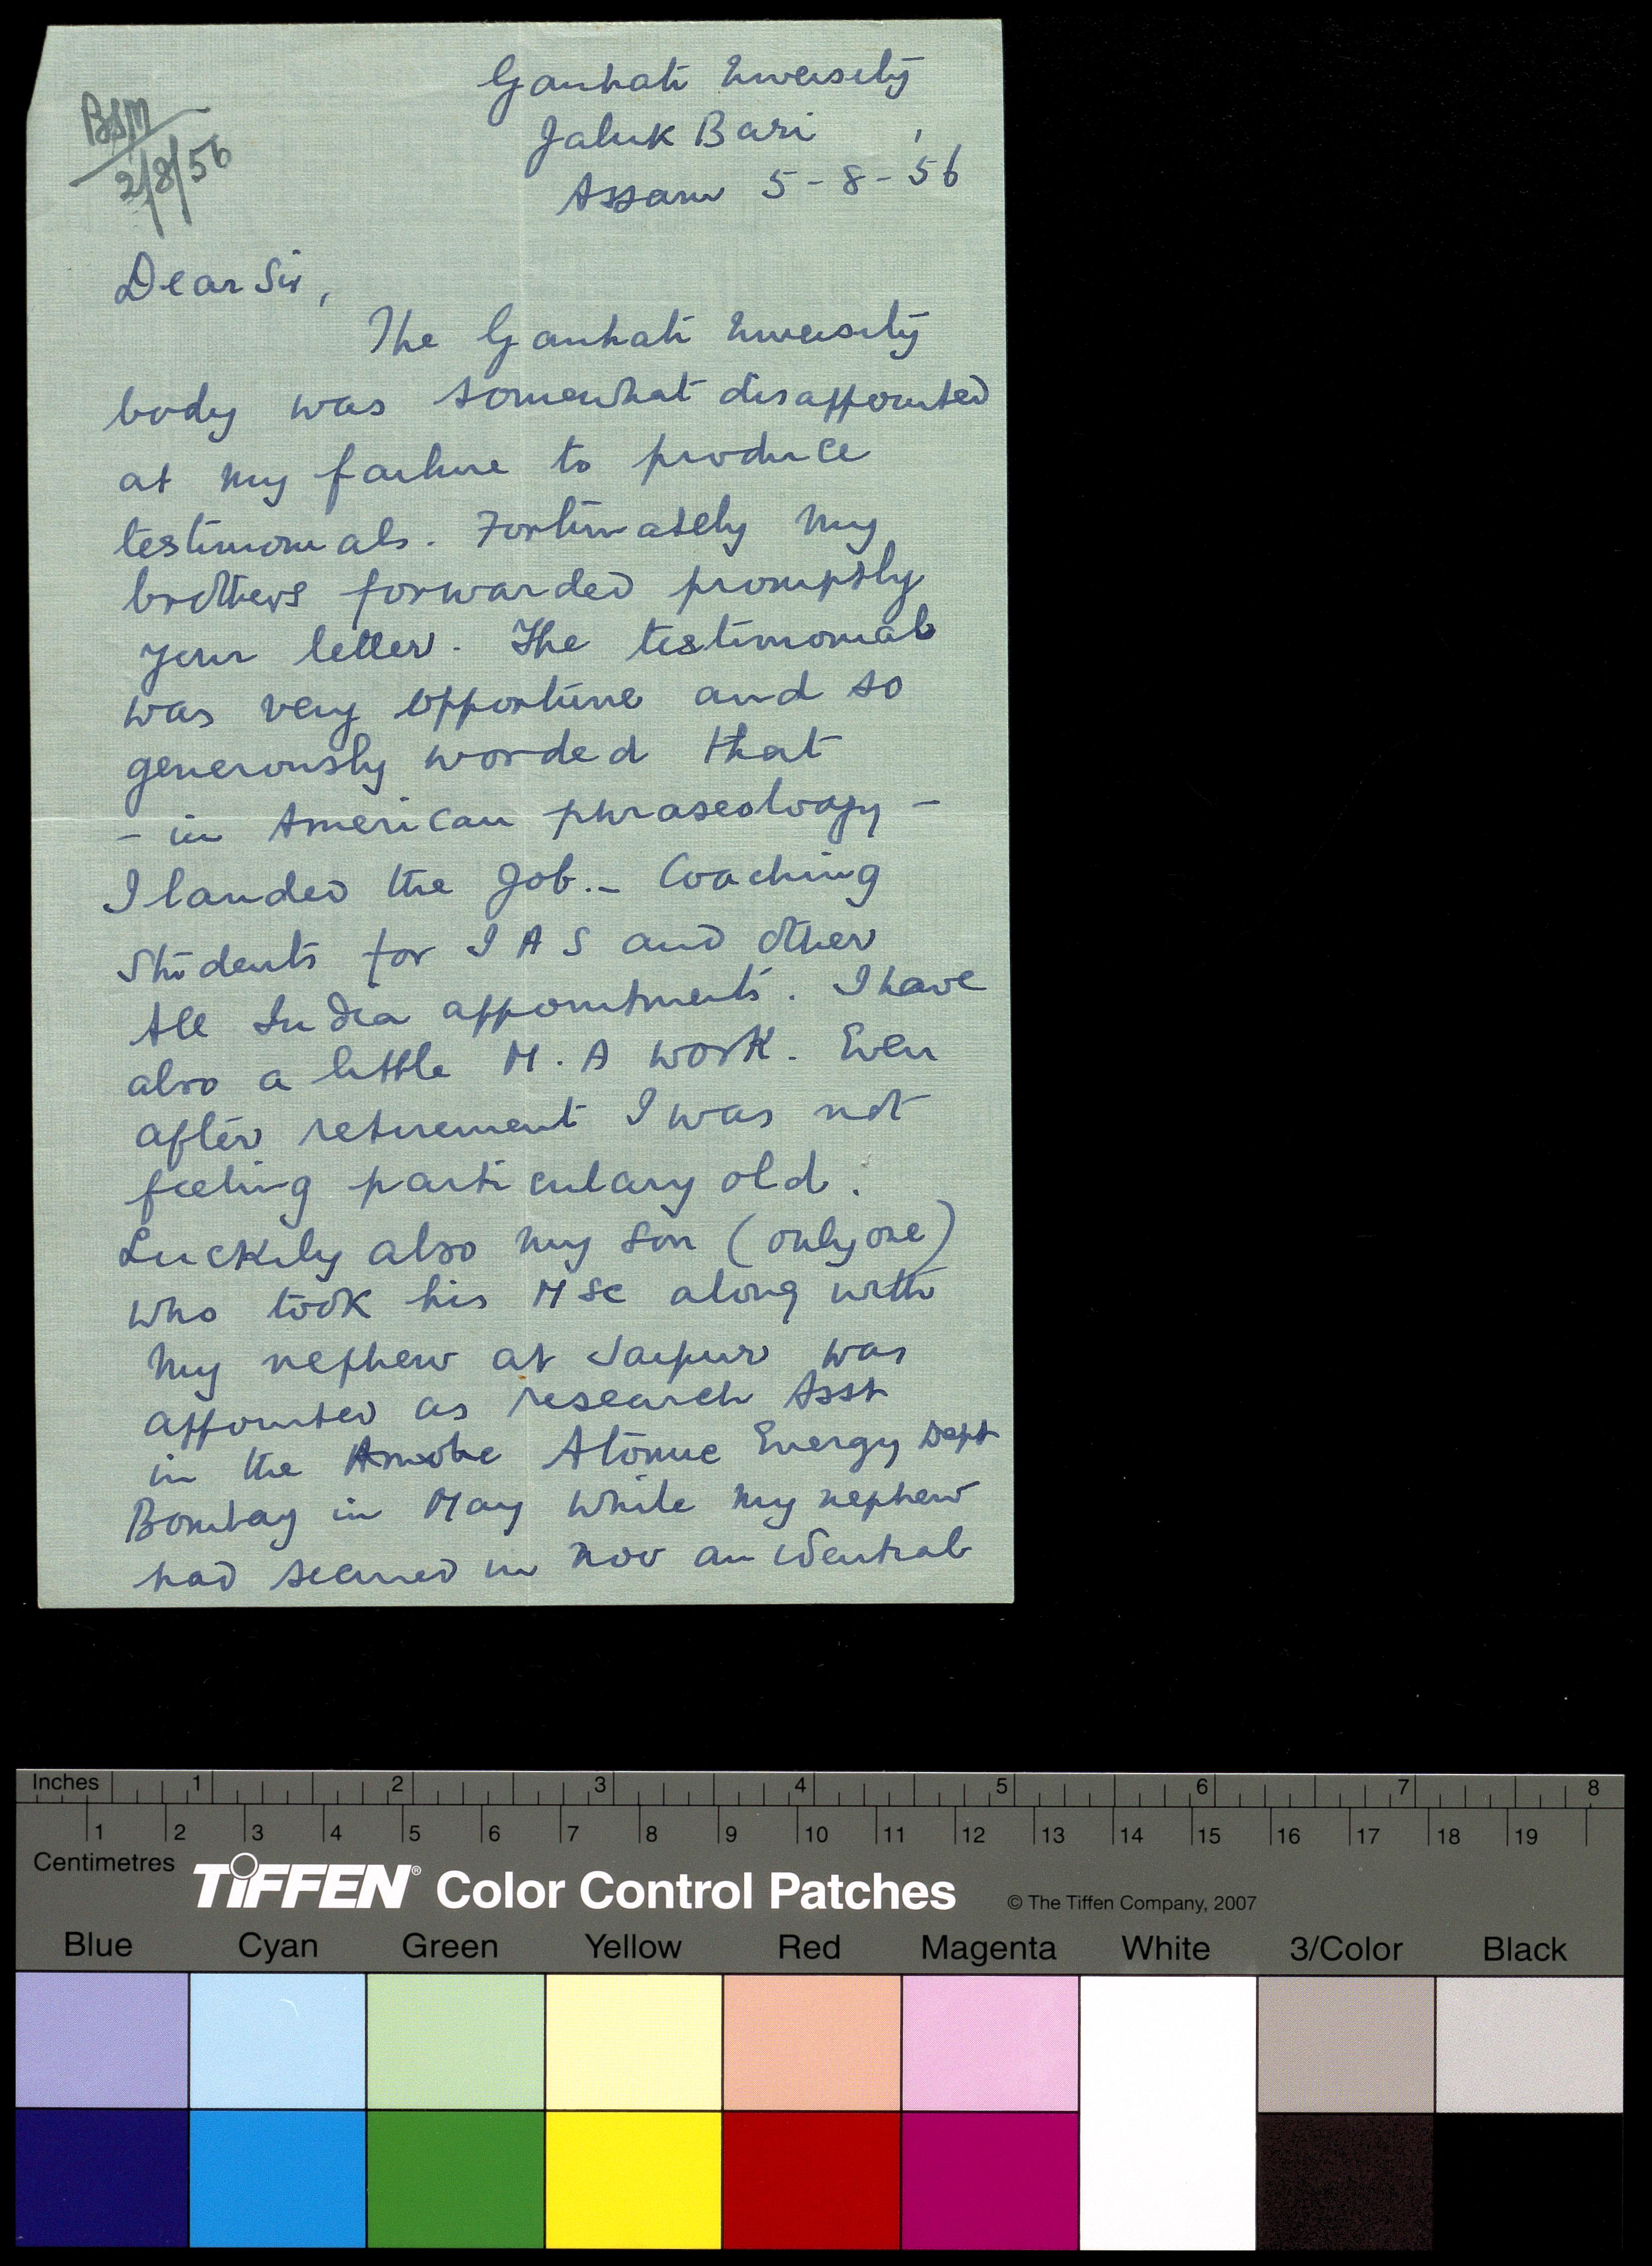 Gauhati University
Jaluk Bari,
Assam 5-8-56
BSM
2/8/56
Dear Sir,
The Gauhati University
body was somewhat disappointed
at my failure to produce
testimonials. Fortunately my
brothers forwarded promptly
your letter. The testimonial
was very opportune and so
generously worded that
- in American phraseology -
I landed the job. - Coaching
Students for I A S and other
All India appointments. I have
also a little M.A work. Even
after retirement I was not
feeling particulary old.
Luckily also my son (only one)
who took his MSc along with
my nephew at Jaipur was
appointed as research Asst
in the Atomic Energy Dept
Bombay in May while my nephew
had secured in Nov an identical
Inches 1 2 3 4 5 6 7 8
1 2 3 4 5 6 7 8 9 10 11 12 13 14 15 16 17 18 19
Centimetres
TIFFEN® Color Control Patches © The Tiffen Company, 2007
Blue Cyan Green Yellow Red Magenta White 3/Color Black